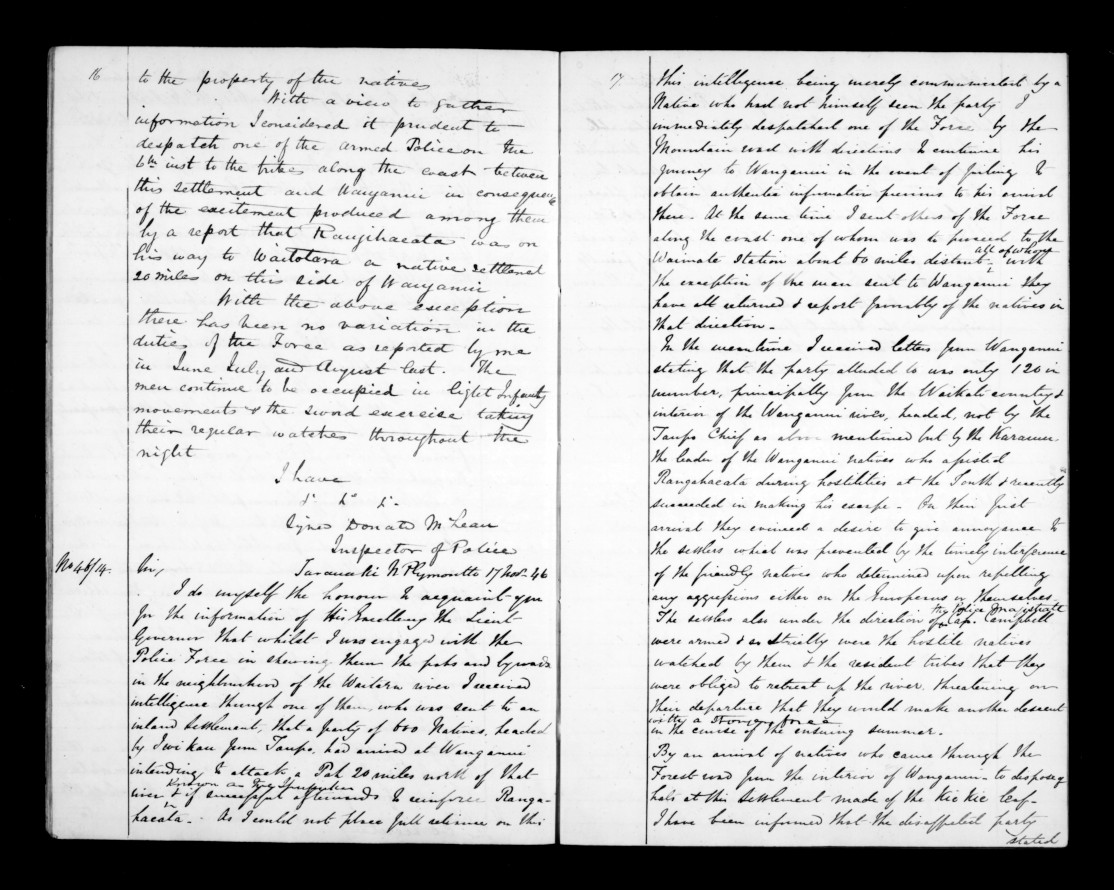 16
to the property of the natives
With a view to gather
information I considered it prudent to
despatch one of the armed Police on the
6th inst to the tribes along the coast between
this settlement and Wanganui in consequence
of the excitement produced among them
by a report that Rangihaeata was on
his way to Waitotara a native settlemet
20 miles on this side of Wanganui
With the above exception
there has been no variation in the
duties of the Force as reported by me
in June July and August last. The
men continue to be occupied in light Infantry
movements & the sword exercise taking
their regular watches throughout the
night
I have
&c &c &c
Signed Donald McLean
Inspector of Police
No 46/14.
Sir, Taranaki N Plymouth 17 Novr 46
I do myself the honour to acquaint you
for the information of His Excellency the Lieut
Governor that whilst I was engaged with the
Police Force in shewing them the pahs and byroads
in the neighbourhood of the Waitara river I received
intelligence through one of them, who was sent to an
inland settlement, that a party of 600 Natives, headed
by Iwikau from Taupo, had arrived at Wanganui
intending to attack a Pah 20 miles north of that
known as
river & if successful afterwards to reinforce Ranga-
haeata. - As I could not place full reliance on this
17
this intelligence being merely communicated by a
Native who had not himself seen the party I
immediately despatched one of the Force by the
Mountain road with directions to continue his
journey to Wanganui in the event of failing to
obtain authentic information previous to his arrival
there. At the same time I sent others of the Force
along the coast one of whom was to proceed to the
Waimate Station about 60 miles distant. all of whom with
the exception of the man sent to Wanganui they
have all returned & report favourably of the natives in
that direction.
In the meantime I received letters from Wanganui
stating that the party alluded to was only 120 in
number, principally from the Waikato country &
interior of the Wanganui river, headed, not by the
Taupo Chief as above mentioned but by the
the leader of the Wanganui natives who assisted
Rangahaeata during hostilities at the South & recently
succeeded in making his escape. On their first
arrival they evinced a desire to give annoyance to
the settlers which was prevented by the timely interference
of the friendly natives who determined upon repelling
any aggressions either on the Europeans or themselves.
The settlers also under the direction of the Police Magistrate Cap. Campbell
were armed & so strictly were the hostile natives
watched by them & the resident tribes that they
were obliged to retreat up the river threatening on
their departure that they would make another descent
with a stronger force
in the course of the ensuing summer.
By an arrival of natives who came through the
Forest road from the interior of Wanganui to dispose of
hats at this Settlement made of the Kie Kie leaf
I have been informed that the disaffected party
stated